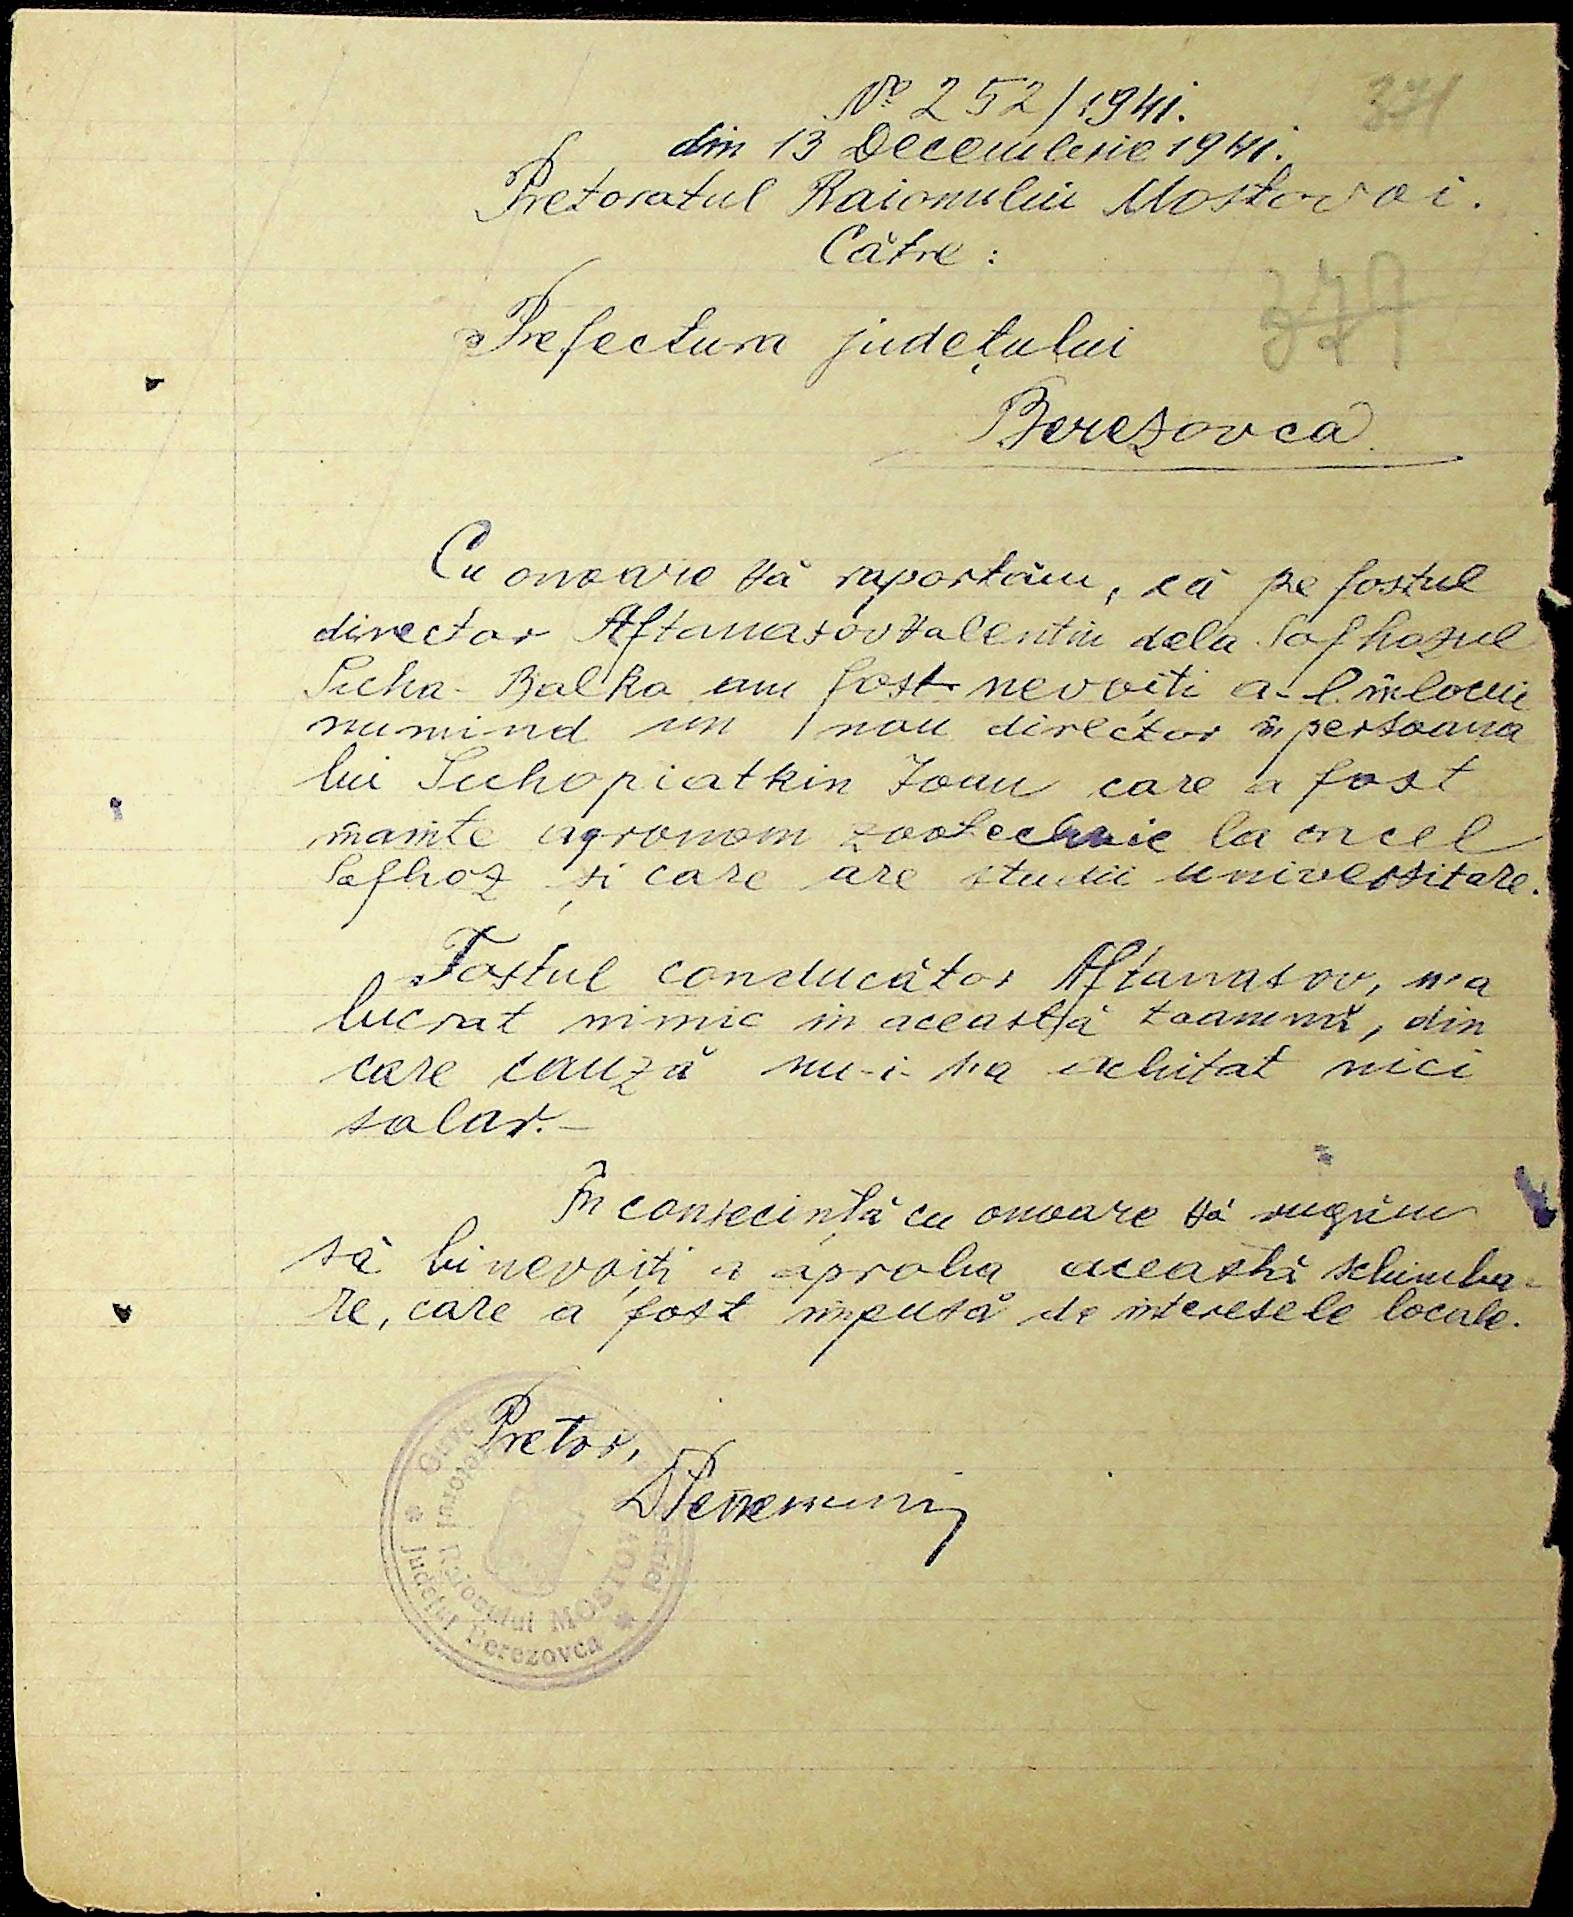 Nº 252/1941.
371
din 13 Decembrie 1941.
Pretoratul Raionului Mostovoi.
Către:
379
Prefectura județului
Berezovca
Cu onoare Vă raportăm, că pe fostul
director Aftanasov Valentin dela Sofhozul
Sucha-Balka am fost nevoiti a-l înlocui
numind un nou director în persoana
lui Suchopiatkin Ioan care a fost
înainte agronom zootechnic la acel
Sofhoz și care are studii universitare.
Fostul conducător Aftanasov, n'a
lucrat nimic in această toamnă, din
care cauză nu-i-s'a achitat nici
salar.-
În consecință cu onoare Vă rugăm
să binevoiți a aproba această schimba-
re, care a fost impusă de interesele locale.
Pretor,
Pretoratul Raionului MOSTOVOI
* Județul Berezovca *